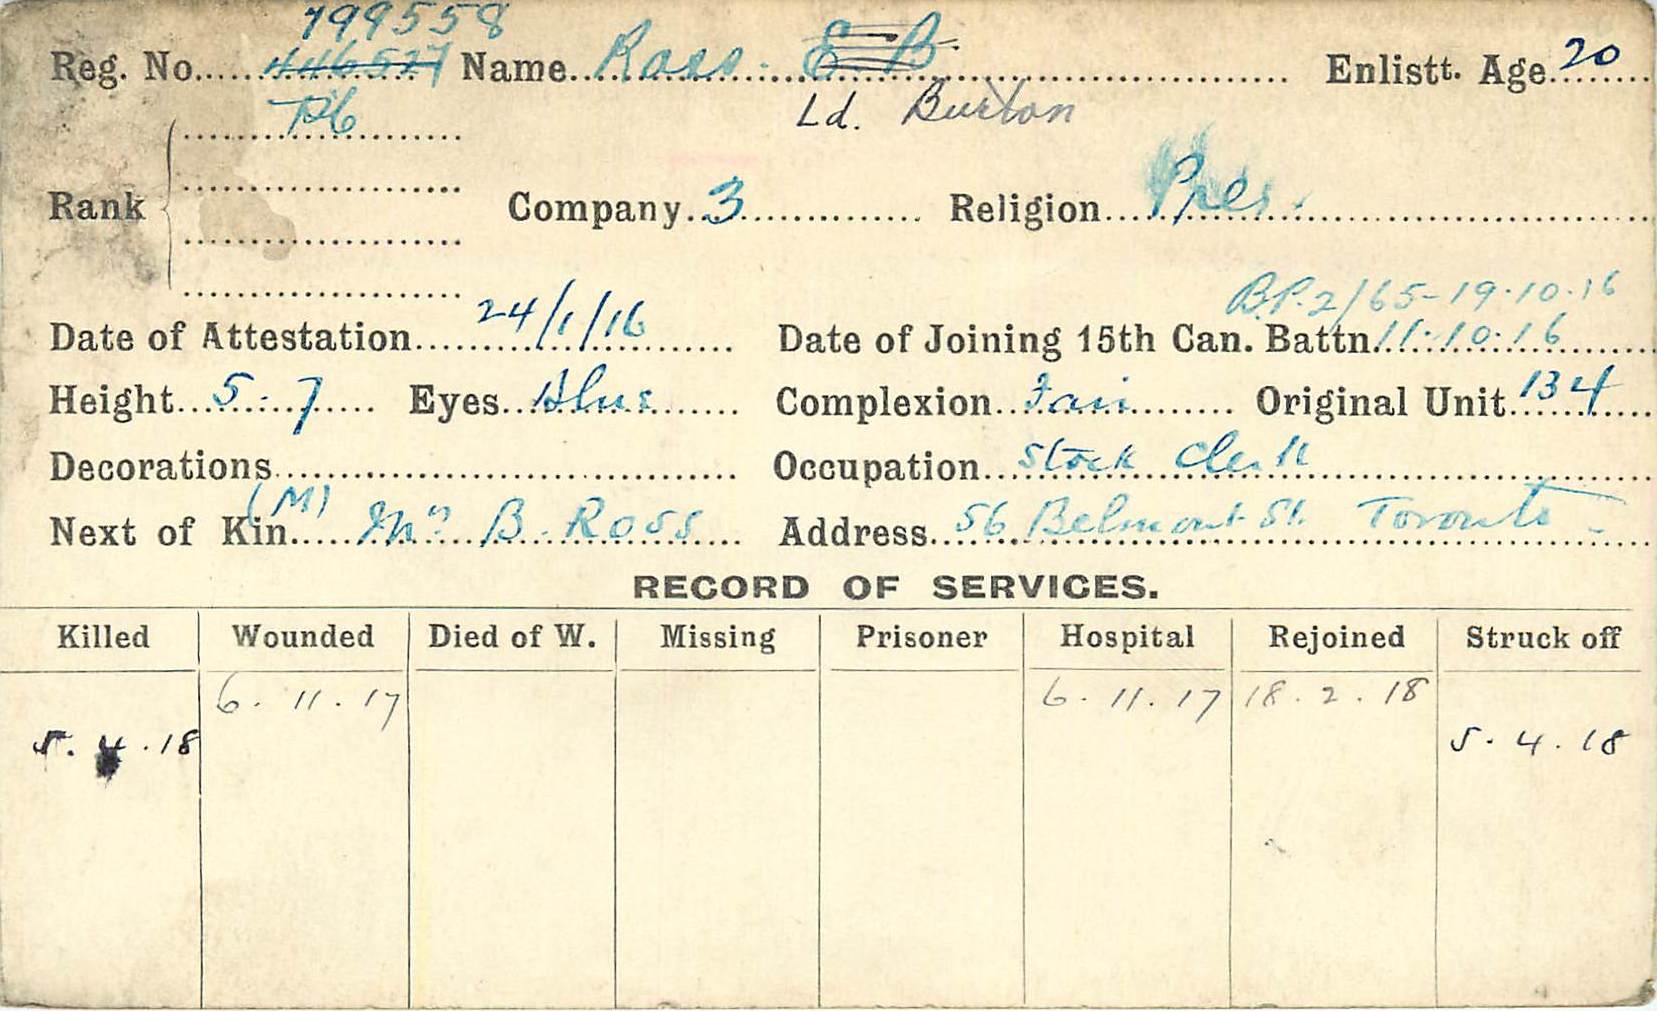 799558
Reg. No. 446527 Name Ross. E. B. Enlistt. Age. 20
Pte Ld. Burton
Rank Company 3 Religion Pres.
B.P.2/65-19.10.16
Date of Attestation 24/1/16 Date of Joining 15th Can. Battn. 11.10.16
Height 5.7 Eyes Blue Complexion Fair Original Unit 134
Decorations Occupation Stock Clerk
(M)
Next of Kin Mrs B. Ross Address 56 Belmont St. Toronto
RECORD OF SERVICES.
Killed Wounded Died of W. Missing Prisoner Hospital Rejoined Struck off
6. 11. 17 6. 11. 17 18. 2. 18
5. 4. 18 5. 4. 18